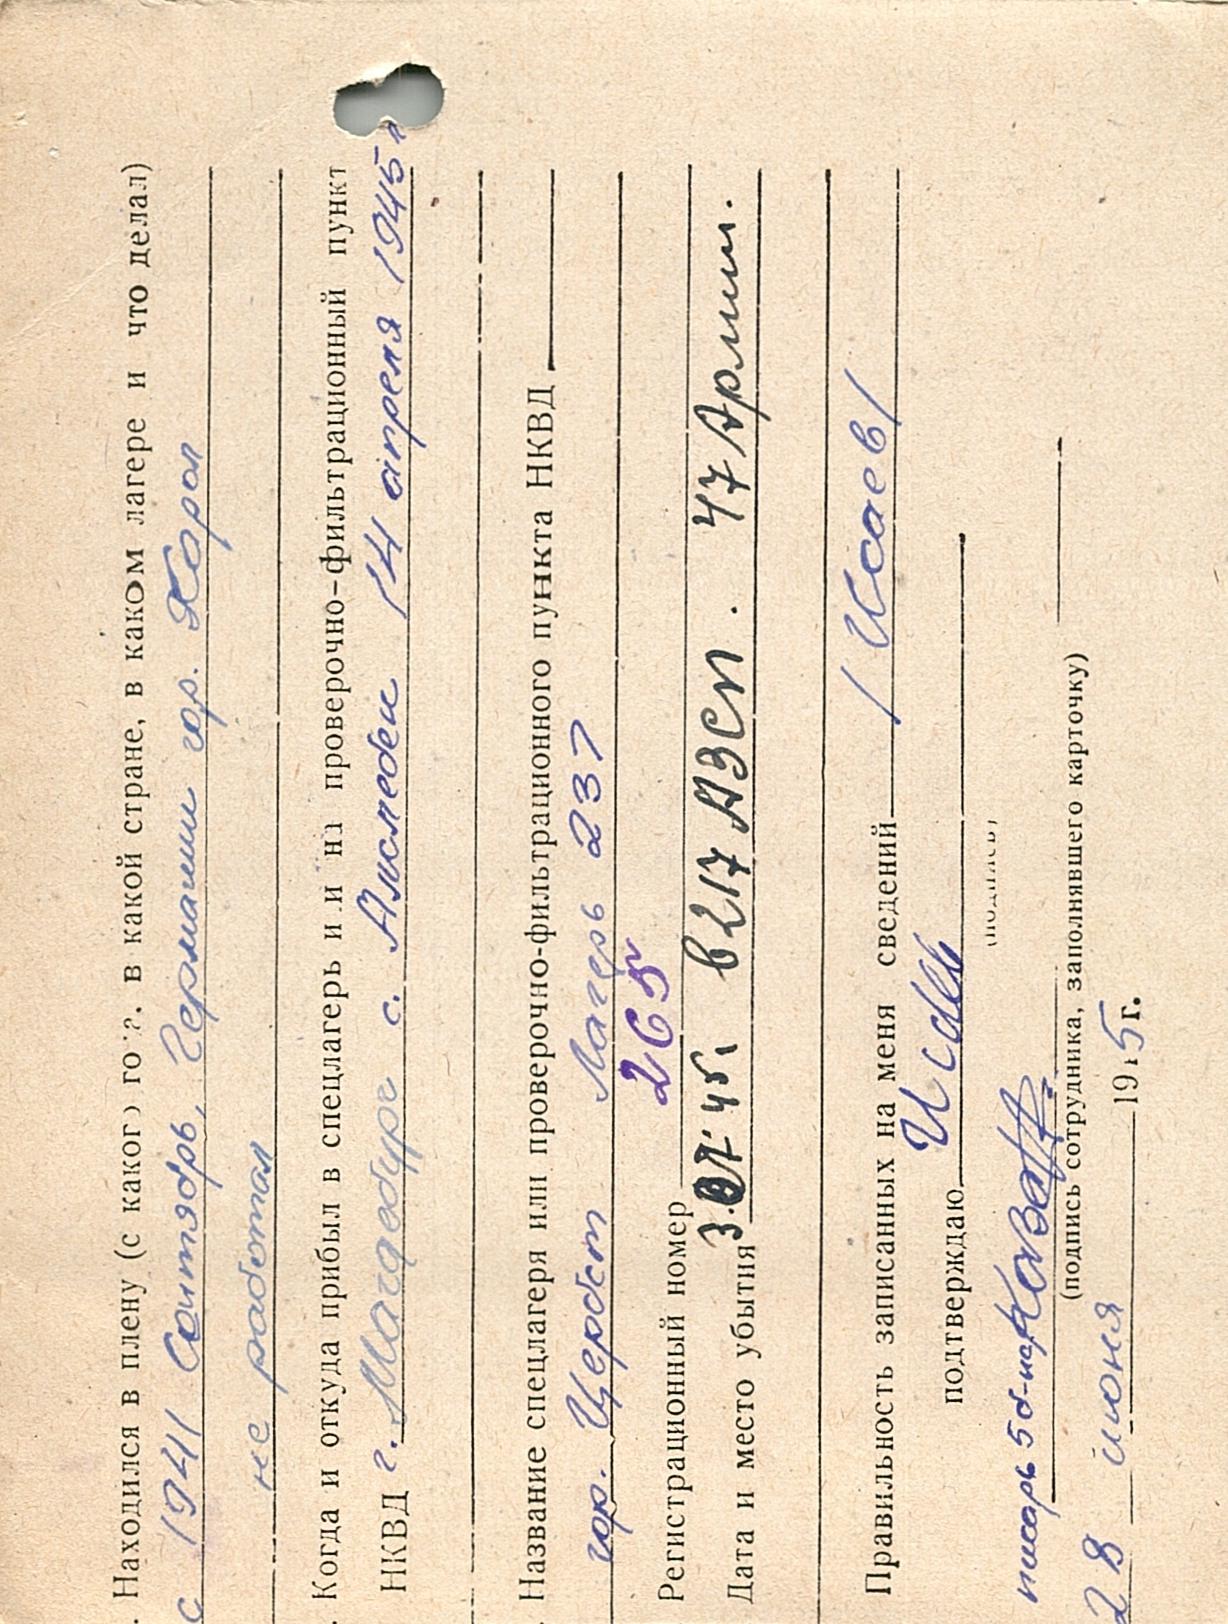 . Находился в плену (с каког) го г. в какой стране, в каком лагере и что делал)
с 1941 Сентябрь, Германии гор. Харол
не работал
. Когда и откуда прибыл в спецлагерь и и на проверочно-фильтрационный пункт
НКВД г. Магдебург с. 14 апреля 1945 г
. Название спецлагеря или проверочно-фильтрационного пункта НКВД
гор. Цербст Лагерь 237
Регистрационный номер 265
Дата и место убытия 3.07.45г в 217 АЗСП. 47 Армии.
Правильность записанных на меня сведений / Исаев /
подтверждаю Исаев
(подпись)
писарь 5
(подпись сотрудника, заполнявшего карточку)
28 июня 1945г.